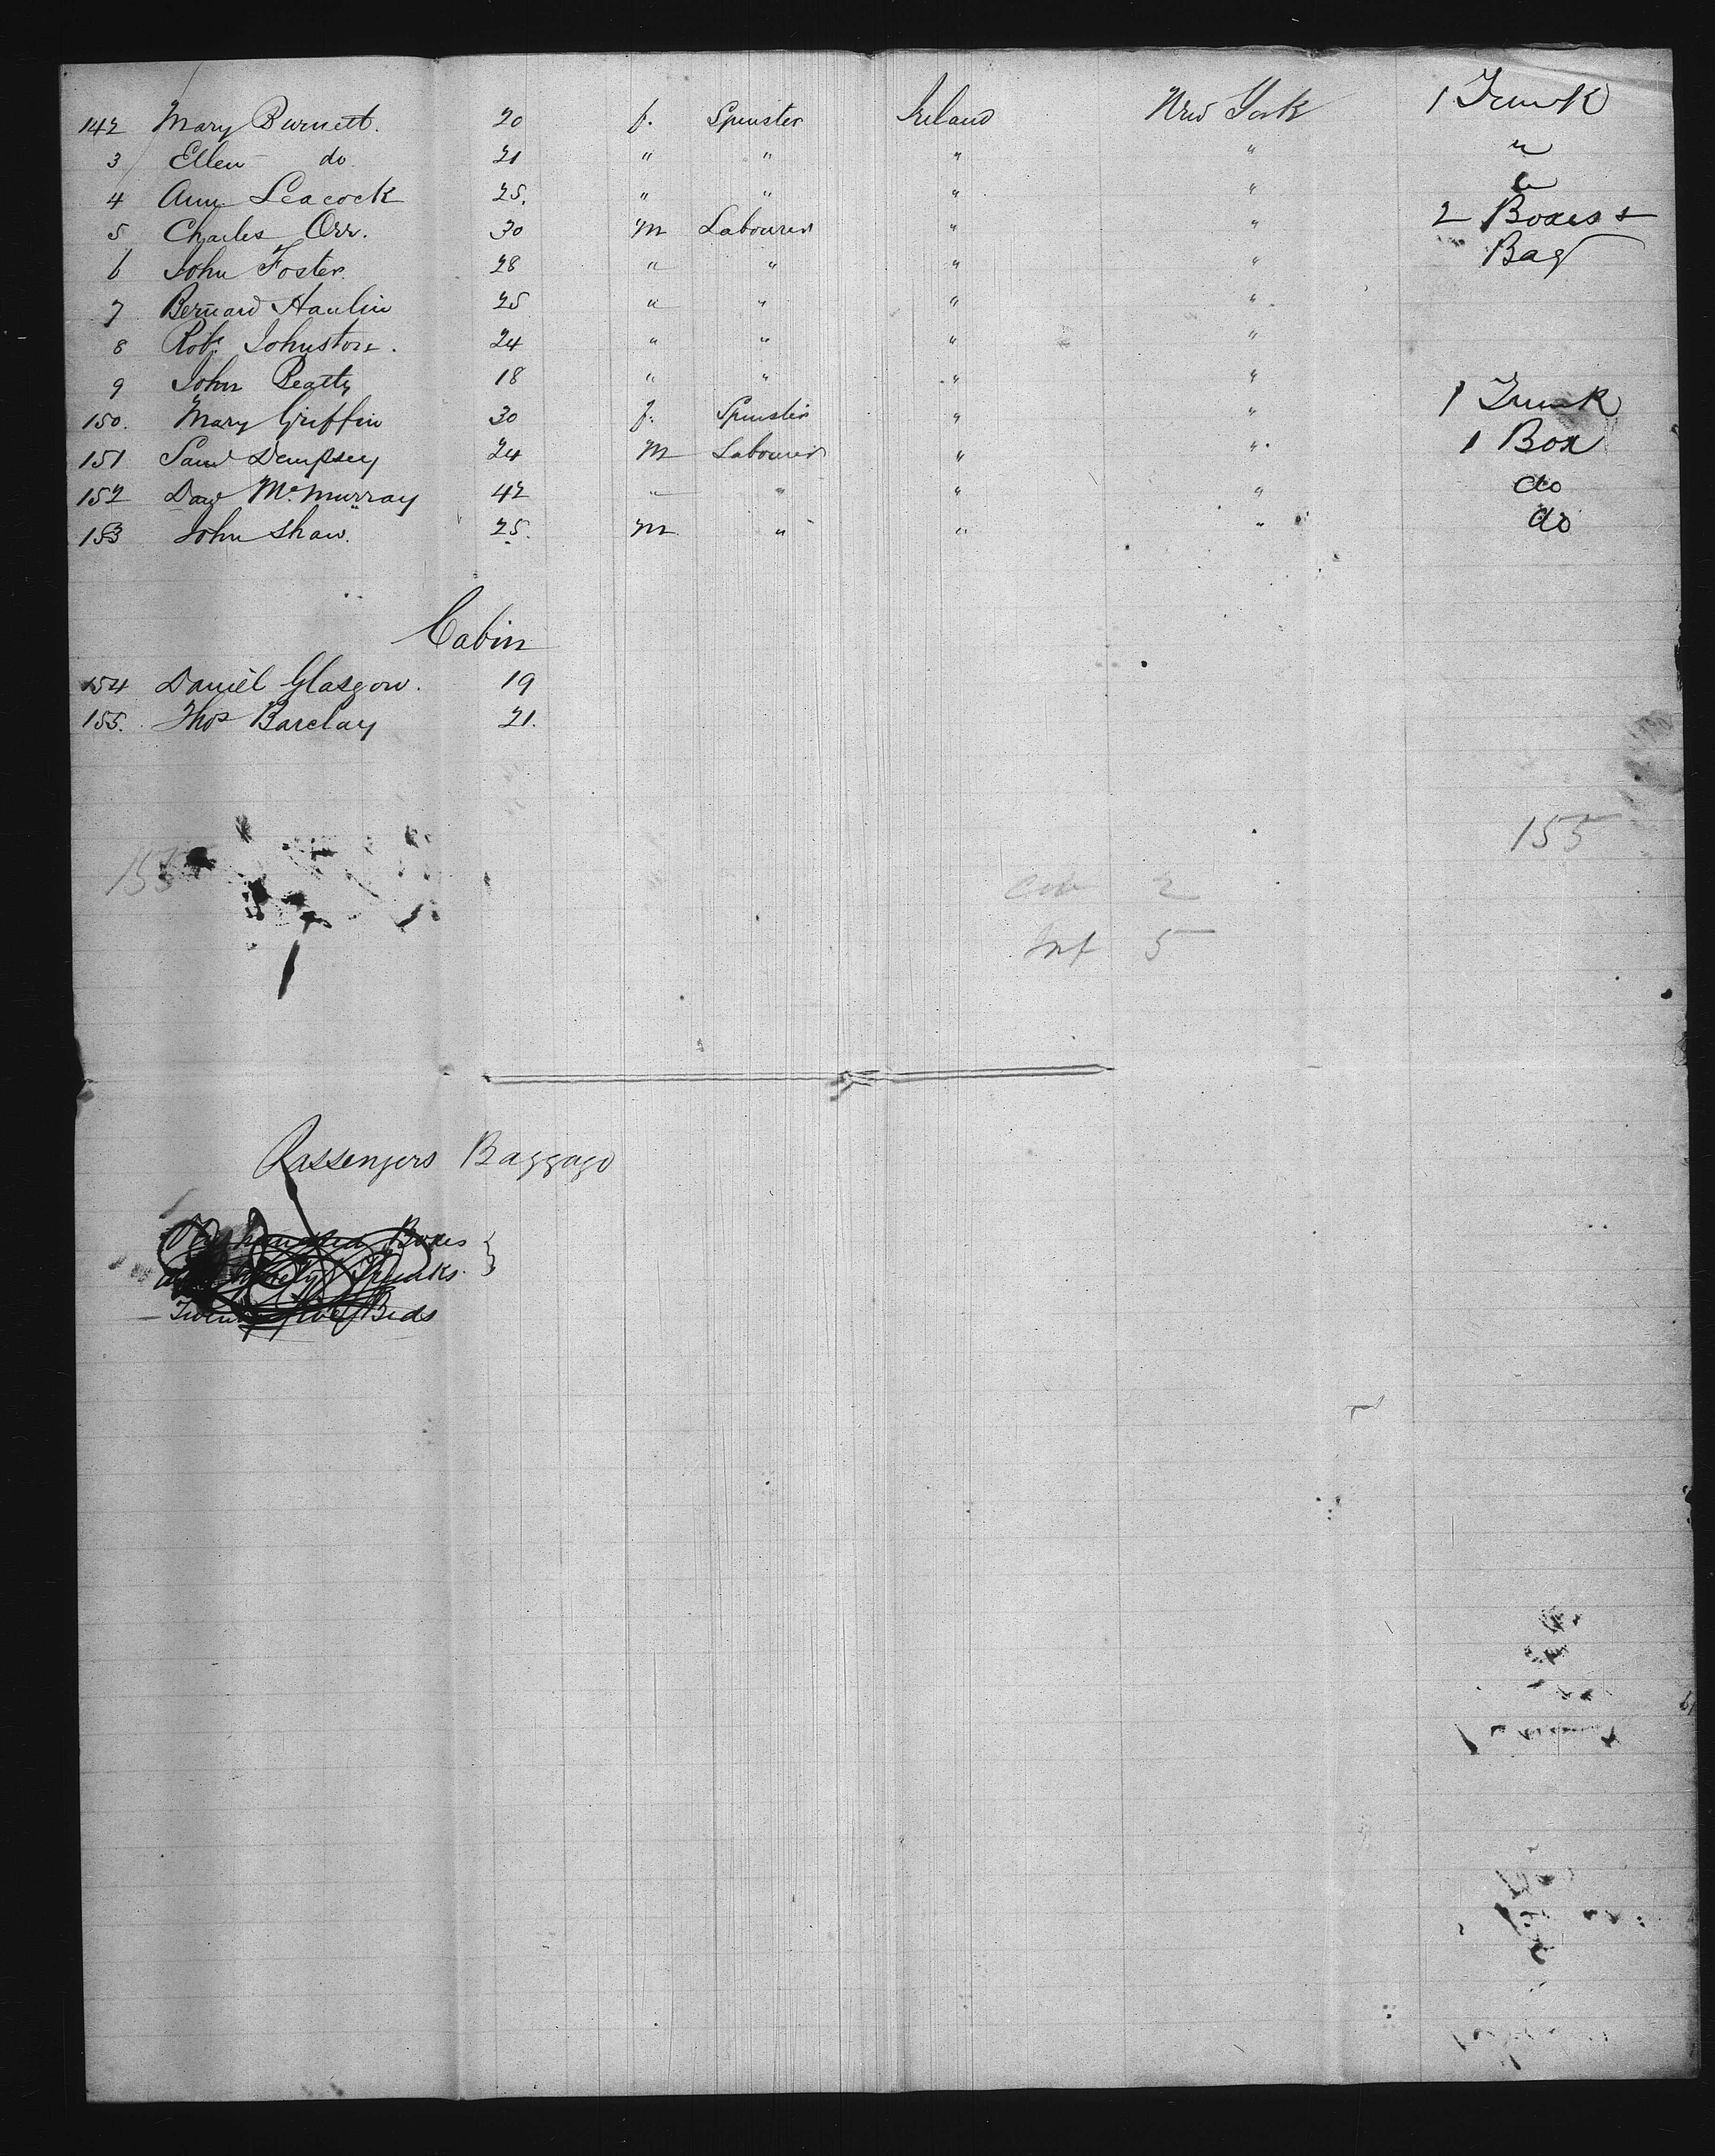 142 Mary Burnett. 20 f. Spinster Ireland New York 1 Trunk
3 Ellen do. 21 " " " " "
4 Ann Leacock 25. " " " " "
5 Charles Orr. 30 M Labourer " " 2 Boxes +
6 John Foster. 28 " " " " Bag
7 Bernard Hanlin 25 " " " "
8 Robt. Johnston. 24 " " " "
9 John Beatty 18 " " " "
150. Mary Griffin 30 f. Spinster " " 1 Trunk
151 Saml Dempsey 24 M Labourer " " 1 Box
152 Davd McMurray 42 " " " " do
153 John Shaw. 25. M " " " do
Cabin
154 Daniel Glasgow. 19
155. Thos Barclay 21.
155
155
Cab 2
Inf 5
Passengers Baggage
hundred Boxes
Trunks
Twenty five Beds